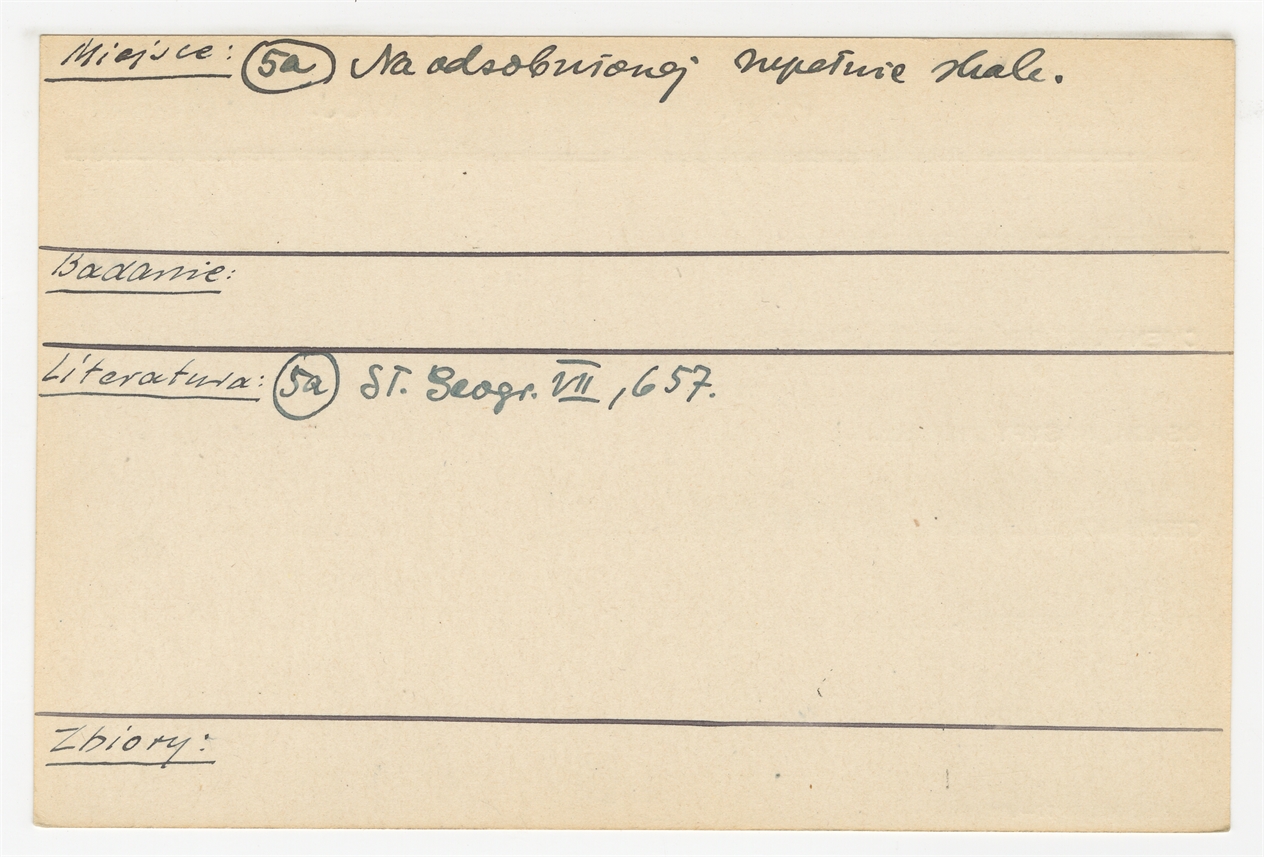 Miejsce: 5a Na odosobnionej zupełnie skale.
Badanie:
Literatura: 5a Sł. Geogr. VII, 657.
Zbiory: